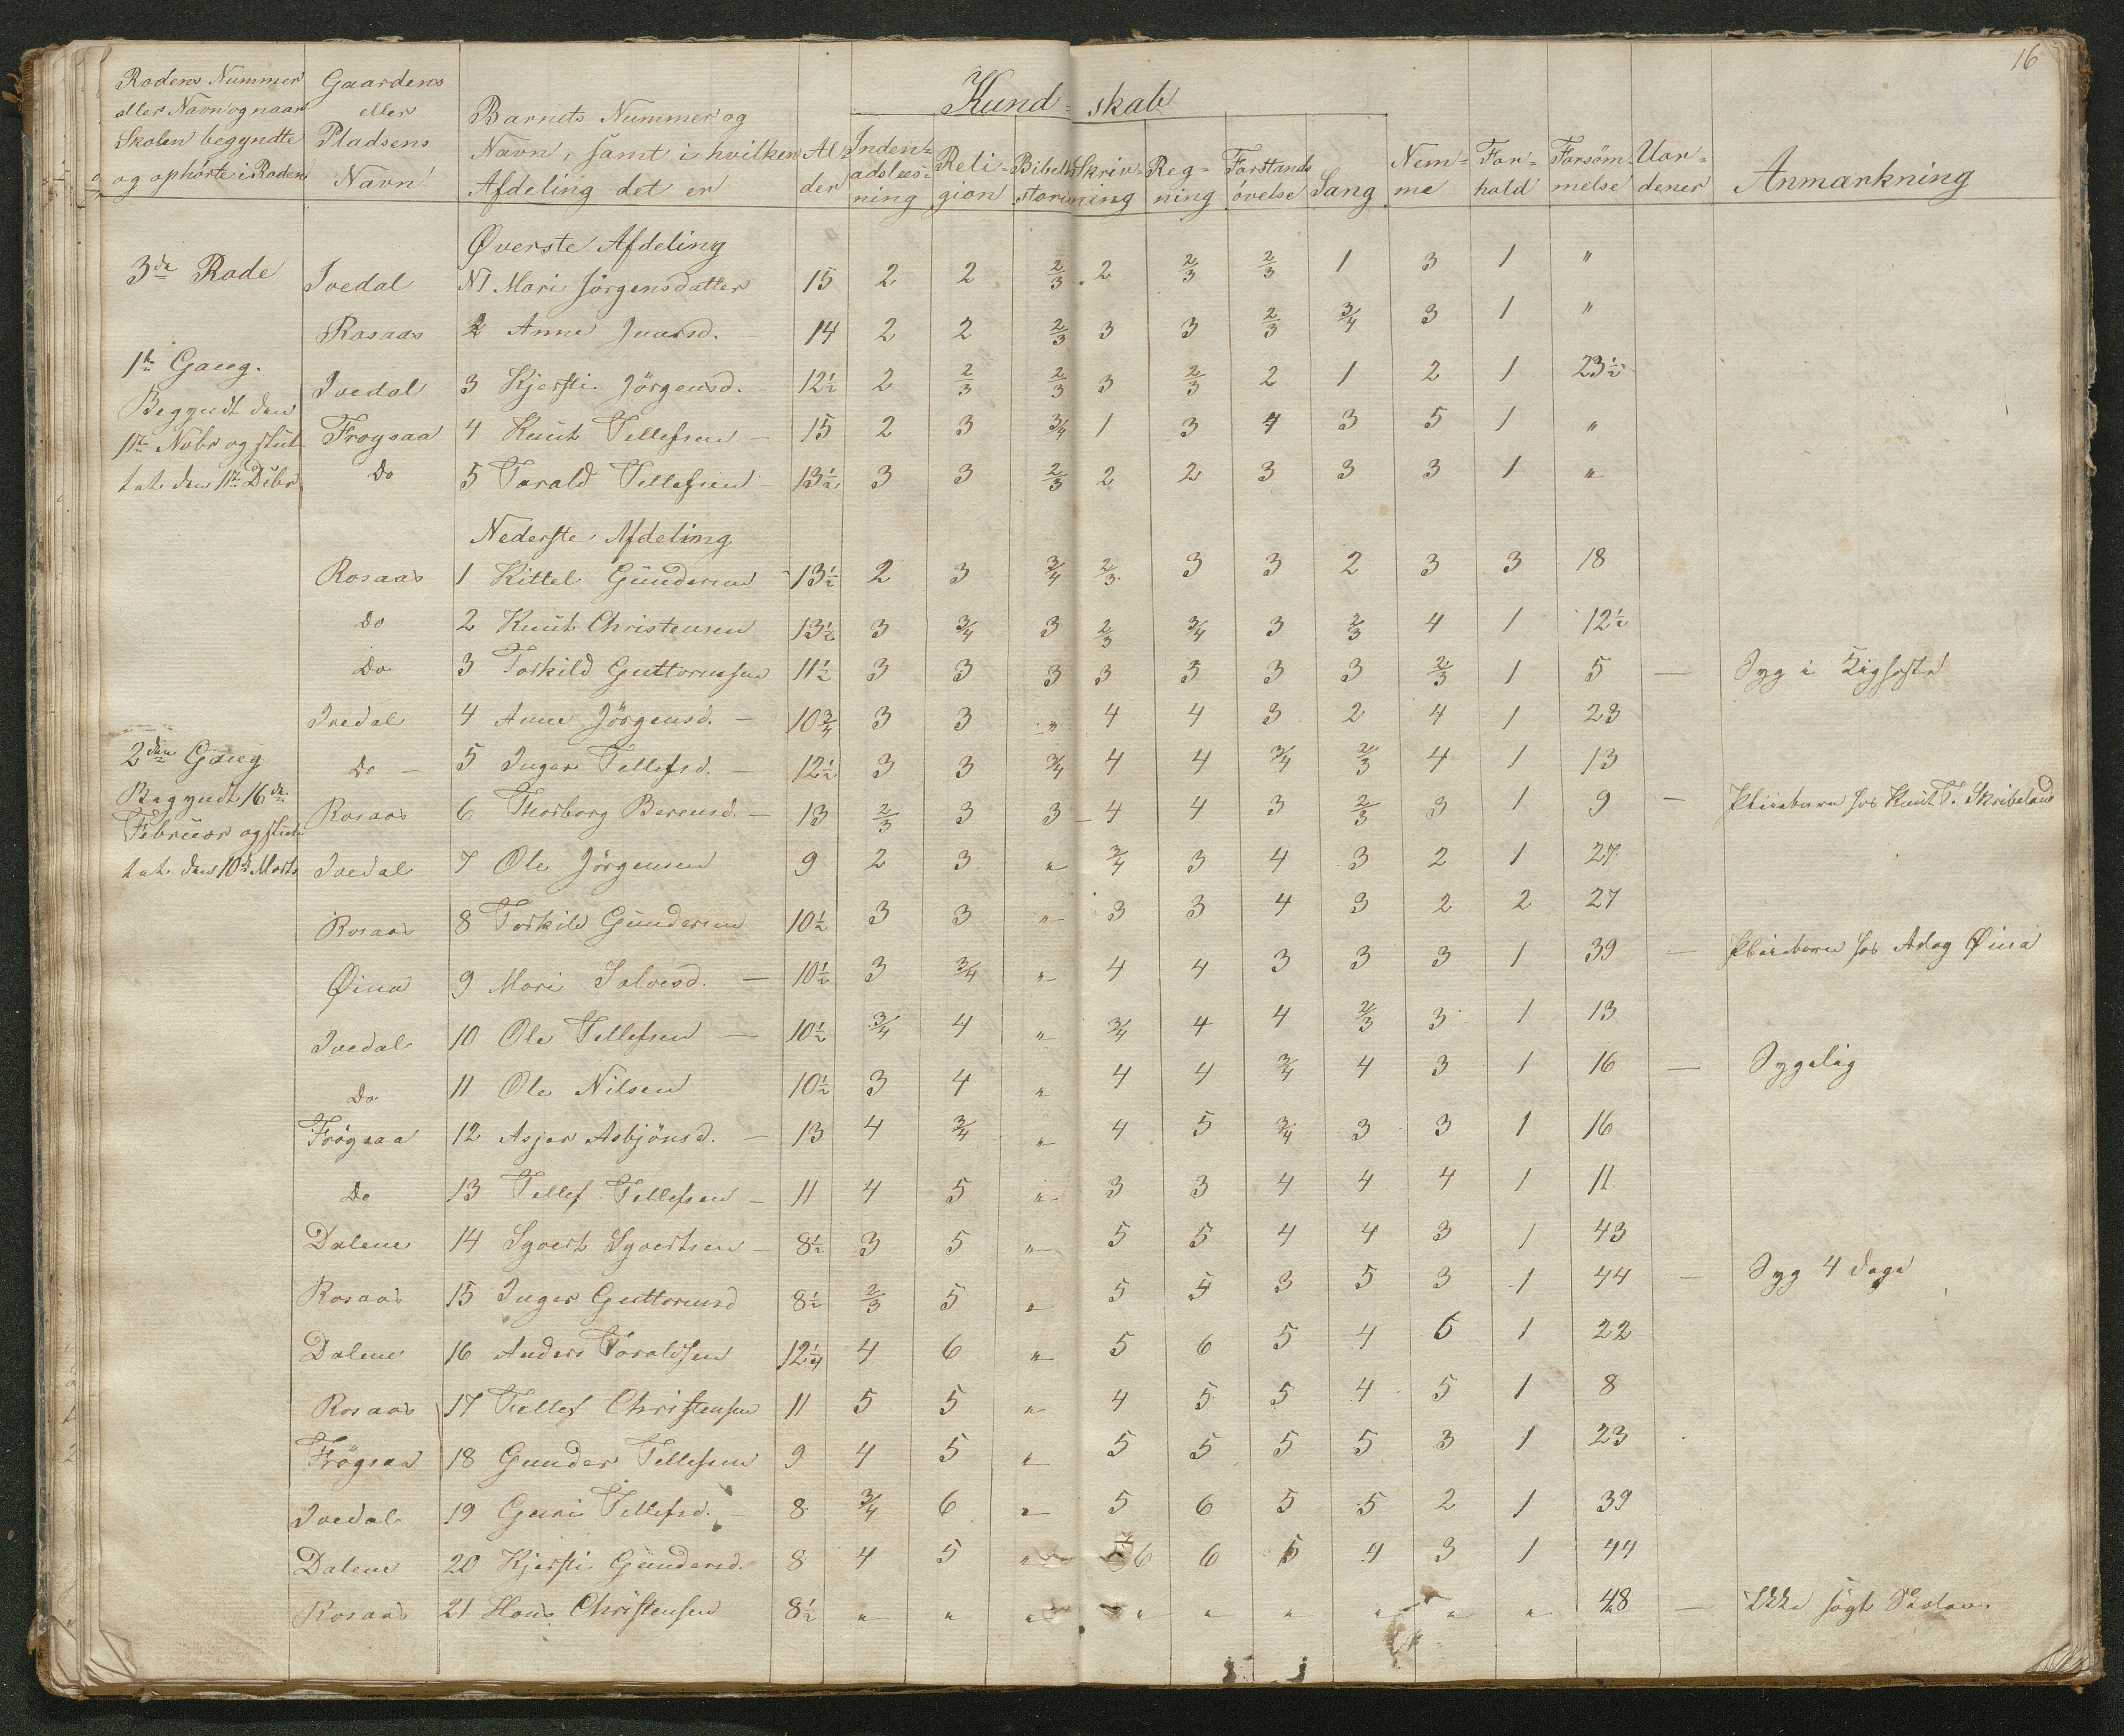 16
Rodens Nummer eller Navn og naar Skolen begyndte og ophörte i Roden | Gaardens eller Pladsens Navn | Barnets Nummer og Navn, samt i hvilken Afdeling det er | Alder | Kund-skab: Indenadslæsning | Religion | Bibelhistorie | Skrivning | Regning | Forstandsövelse | Sang | Nemme | Forhold | Forsömmelse | Uordener | Anmærkning
Øverste Afdeling
3die Rode Ivedal N1 Mari Jörgensdatter 15 2 2 2/3 2 2/3 2/3 1 3 1 "
Rosaas 2 Anne 14 2 2 2/3 3 3 2/3 3/4 3 1 "
1ste Gang.
Ivedal 3 Kjersti Jörgensd. 12½ 2 2/3 2/3 3 2/3 2 1 2 1 23½
Begyndt den
Frøgsaa 4 Knut Tellefsen 15 2 3 3/4 1 3 4 3 5 1 "
11te Nobr og slut-
Do 5 Tarald Tellefsen 13½ 3 3 2/3 2 2 3 3 3 1 "
tet den 11te Dcbr
Nederste Afdeling
Rosaas 1 Kittel Gundersen 13½ 2 3 3/4 2/3 3 3 2 3 3 18
Do 2 Knut Christensen 13½ 3 3/4 3 2/3 3/4 3 2/3 4 1 12½
Do 3 Torkild Guttormsen 11½ 3 3 3 3 3 3 3 2/3 1 5 — Syg i Kighoste
Ivedal 4 Anne Jörgensd. 10¾ 3 3 " 4 4 3 2 4 1 23
2den Gang
Do 5 Inger Tellefsd. 12½ 3 3 3/4 4 4 3/4 2/3 4 1 13
Begyndt 16de
Rosaas 6 Thorborg Berensd. 13 2/3 3 3 4 4 3 2/3 3 1 9 — Pleiebarn hos Knut T. Skribeland
Februar og slut-
tet den 10de Marts
Ivedal 7 Ole Jörgensen 9 2 3 " 3/4 3 4 3 2 1 27
Rosaas 8 Torkild Gundersen 10½ 3 3 " 3 3 4 3 2 2 27
Øina 9 Mari Salvesd. 10½ 3 3/4 " 4 4 3 3 3 1 39 — Pleiebarn hos Aslag Øina
Ivedal 10 Ole Tellefsen 10½ 3/4 4 " 3/4 4 4 2/3 3 1 13
Do 11 Ole Nilsen 10½ 3 4 " 4 4 3/4 4 3 1 16 — Sygelig
Frøgsaa 12 Asjer Asbjönsd. 13 4 3/4 " 4 5 3/4 3 3 1 16
Do 13 Tellef Tellefsen 11 4 5 " 3 3 4 4 4 1 11
Dalene 14 Syvert Syvertsen 8½ 3 5 " 5 5 4 4 3 1 43
Rosaas 15 Inger Guttormsd 8½ 2/3 5 " 5 5 3 5 3 1 44 — Syg 4 Dage
Dalene 16 Anders Taraldsen 12¼ 4 6 " 5 6 5 4 5 1 22
Rosaas 17 Tellef Christensen 11 5 5 " 4 5 5 4 5 1 8
Frøgsaa 18 Gunder Tellefsen 9 4 5 " 5 5 5 5 3 1 23
Ivedal 19 Guri Tellefsd. 8 3/4 6 " 5 6 5 5 2 1 39
Dalene 20 Kjersti Gundersd. 8 4 5 " 6 6 5 4 3 1 44
Rosaas 21 Hans Christensen 8½ " " " " " " " " " 48 — Ikke sögt Skolen.